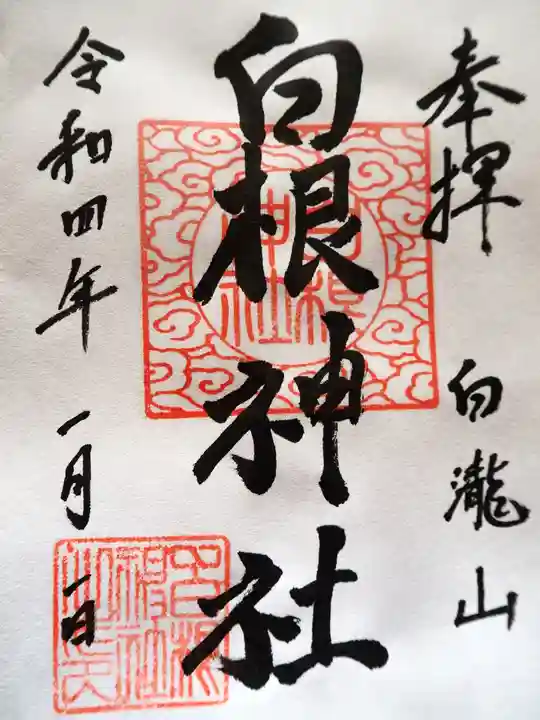 奉拝
白瀧山
白根神社
白根神社
令和四年
一月一日